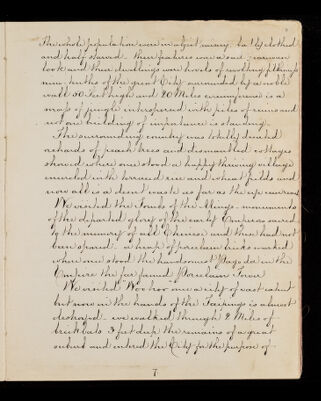 The whole population were in abject misery, badly clothed
and half starved. their features wore a sad, careworn
look and their dwellings were hovels of matting &
nine tenths of the great City surrounded by a noble
wall 50 feet high and 20 Miles circumference is a
mass of jungle interspersed with piles of ruins and
not one building of importance is standing.
The surrounding country was totally deserted
orchards of peach trees and dismantled cottages
showed where once stood a happy thriving village
encircled with terraced rice and wheat fields and
now all is a desert waste as far as the eye can reach
We visited the Tombs of the Mings, monuments
of the departed glory of the early Emperors sacred
to the memory of all Chinese and these had not
been spared. a heap of porcelain bricks marked
where once stood the handsomest Pagoda in the
Empire the far famed Porcelain Tower
We visited Woo hoo once a city of vast extent
but now in the hands of the Taepings is almost
destroyed. we walked through 2 Miles of
brickbats 3 feet deep the remains of a great
suburb and entered the City for the purpose of
7